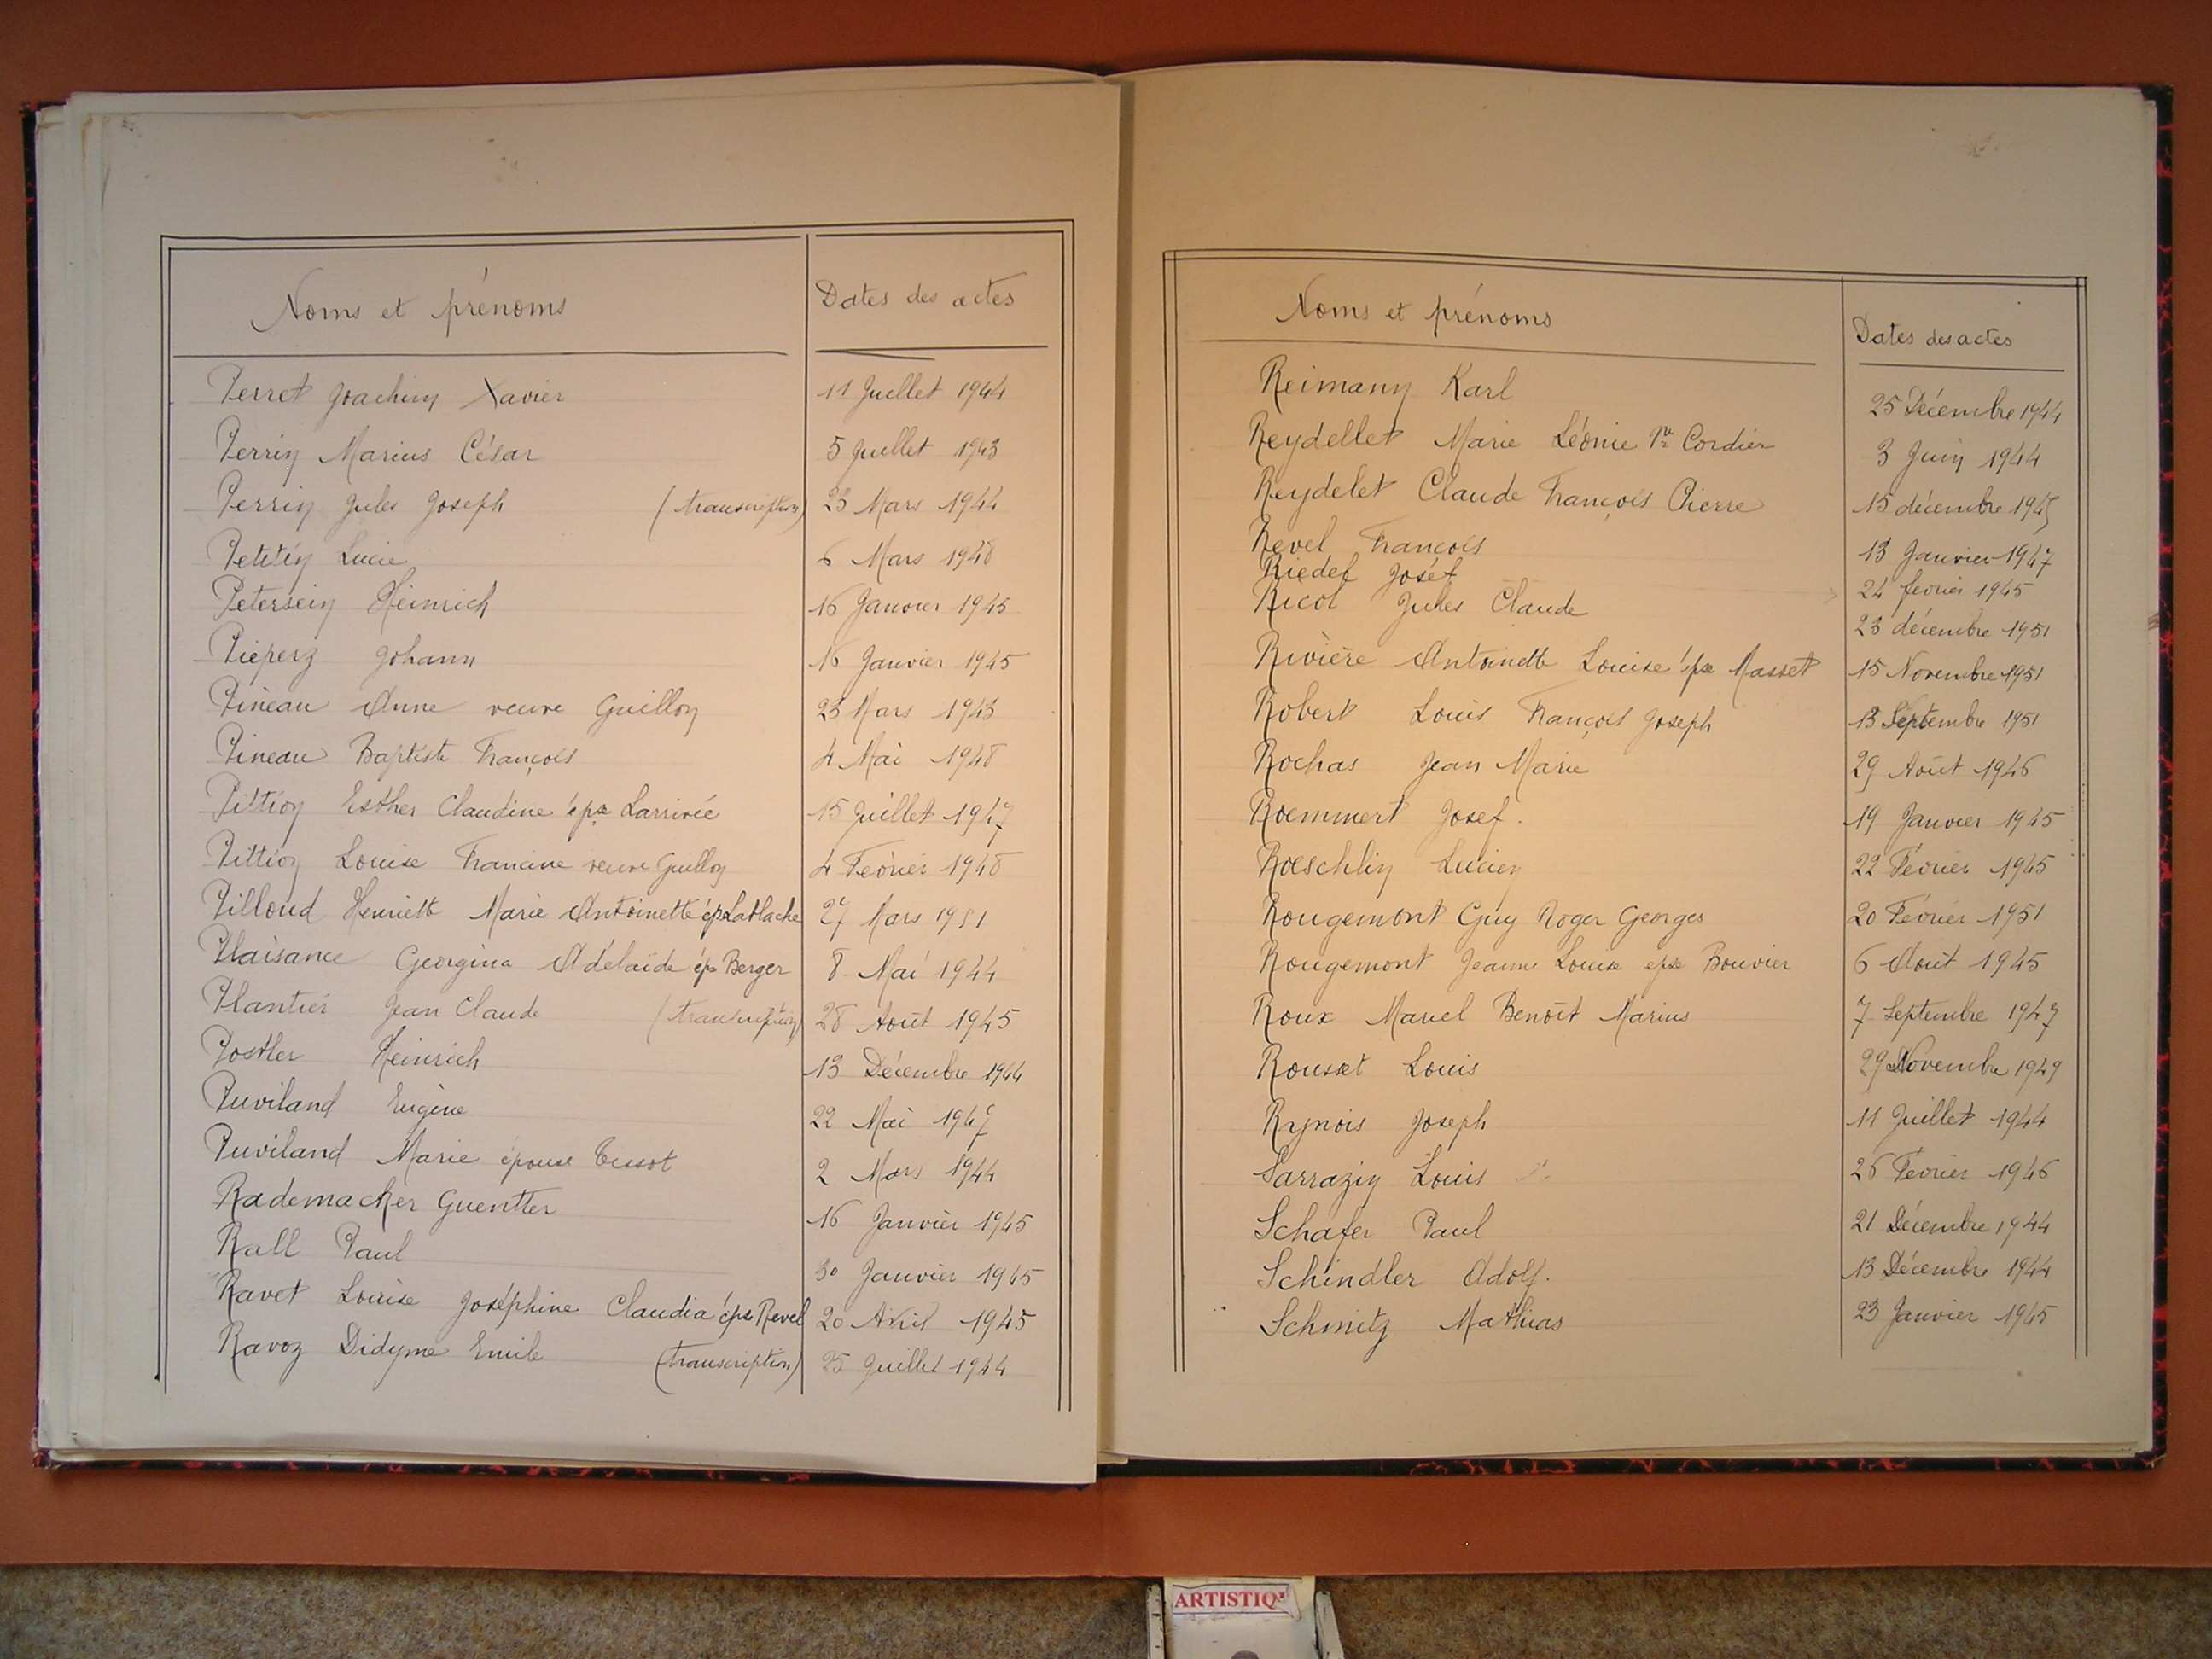 Noms et prénoms Dates des actes
Perret Joachim Xavier 11 Juillet 1944
Perrin Marius César 5 Juillet 1943
Perrin Jules Joseph (transcription) 23 Mars 1944
Petetin Lucie 6 Mars 1948
Petersein Heinrich 16 Janvier 1945
Pieperz Johann 16 Janvier 1945
Pineau Anne veuve Guillon 23 Mars 1943
Pineau Baptiste François 4 Mai 1948
Pittion Esther Claudine épse Larrivée 15 Juillet 1947
Pittion Louise Francine veuve Guillon 4 Février 1948
Pilloud Henriette Marie Antoinette ép Lablache 27 Mars 1951
Plaisance Georgina Adélaïde ép Berger 8 Mai 1944
Plantier Jean Claude (transcription) 28 Août 1945
Postler Heinrich 13 Décembre 1944
Puviland Eugène 22 Mai 1949
Puviland Marie épouse Tissot 2 Mars 1944
Rademacker Guentter 16 Janvier 1945
Rall Paul 30 Janvier 1945
Ravet Louise Joséphine Claudia épse Revel 20 Avril 1945
Ravoz Didyme Emile (transcription) 25 Juillet 1944
Noms et prénoms Dates des actes
Reimann Karl 25 Décembre 1944
Reydellet Marie Léonie Vve Cordier 3 Juin 1944
Reydelet Claude François Pierre 15 décembre 1945
Revel François 13 Janvier 1947
Riedel Josef 24 février 1945
Ricol Jules Claude 23 décembre 1951
Rivière Antoinette Louise épse Masset 15 Novembre 1951
Robert Louis François Joseph 13 Septembre 1951
Rochas Jean Marie 29 Août 1946
Roemmert Josef. 19 Janvier 1945
Roeschlin Lucien 22 Février 1945
Rougemont Guy Roger Georges 20 Février 1951
Rougemont Jeanne Louise epse Bouvier 6 Août 1945
Roux Marcel Benoît Marius 7 Septembre 1947
Rousset Louis 29 Novembre 1949
Rynois Joseph 11 Juillet 1944
Sarrazin Louis 26 Février 1946
Schafer Paul 21 Décembre 1944
Schindler Adolf. 13 Décembre 1944
Schmitz Mathias 23 Janvier 1945
ARTISTIQ